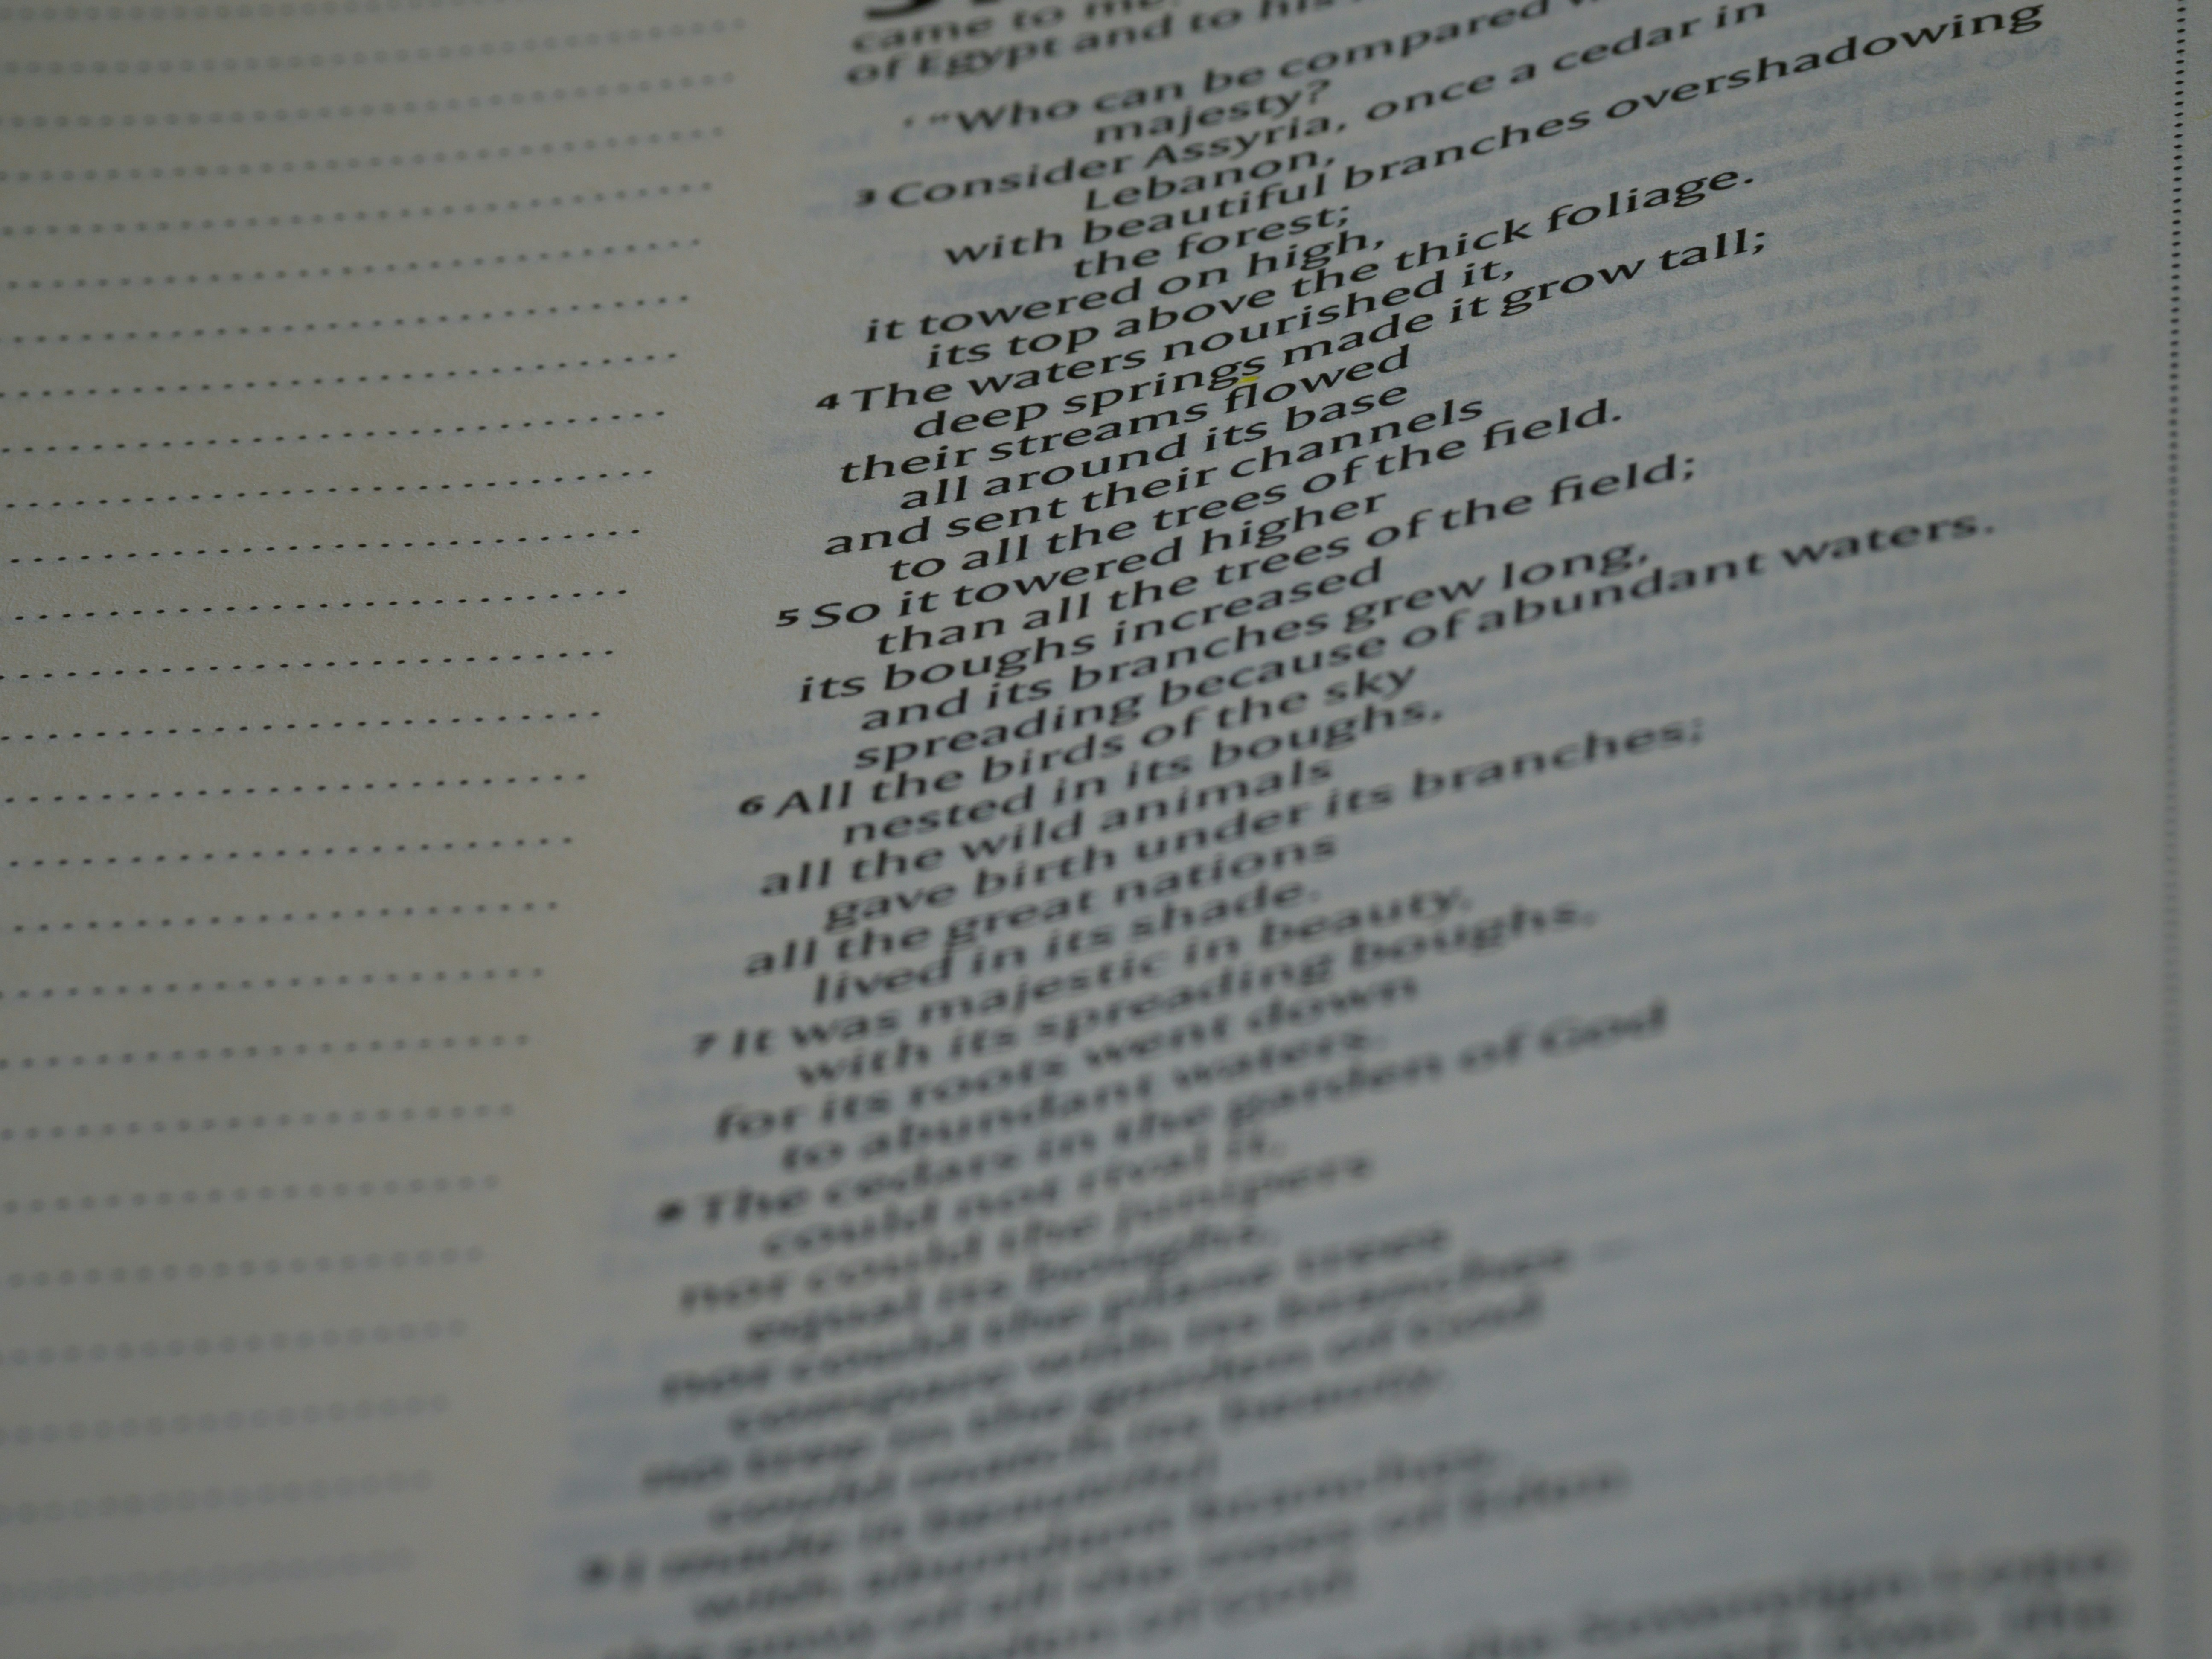 came to me:
of Egypt and to his
"Who can be compared
majesty?
3 Consider Assyria, once a cedar in
Lebanon,
with beautiful branches overshadowing
the forest;
it towered on high,
its top above the thick foliage.
4 The waters nourished it,
deep springs made it grow tall;
their streams flowed
all around its base
and sent their channels
to all the trees of the field.
5 So it towered higher
than all the trees of the field;
its boughs increased
and its branches grew long,
spreading because of abundant waters.
6 All the birds of the sky
nested in its boughs,
all the wild animals
gave birth under its branches;
all the great nations
lived in its shade.
7 It was majestic in beauty,
with its spreading boughs,
for its roots went down
to abundant waters.
8 The cedars in the garden of God
could not rival it,
nor could the junipers
equal its boughs,
nor could the plane trees
compare with its branches—
no tree in the garden of God
could match its beauty.
9 I made it beautiful
with abundant branches,